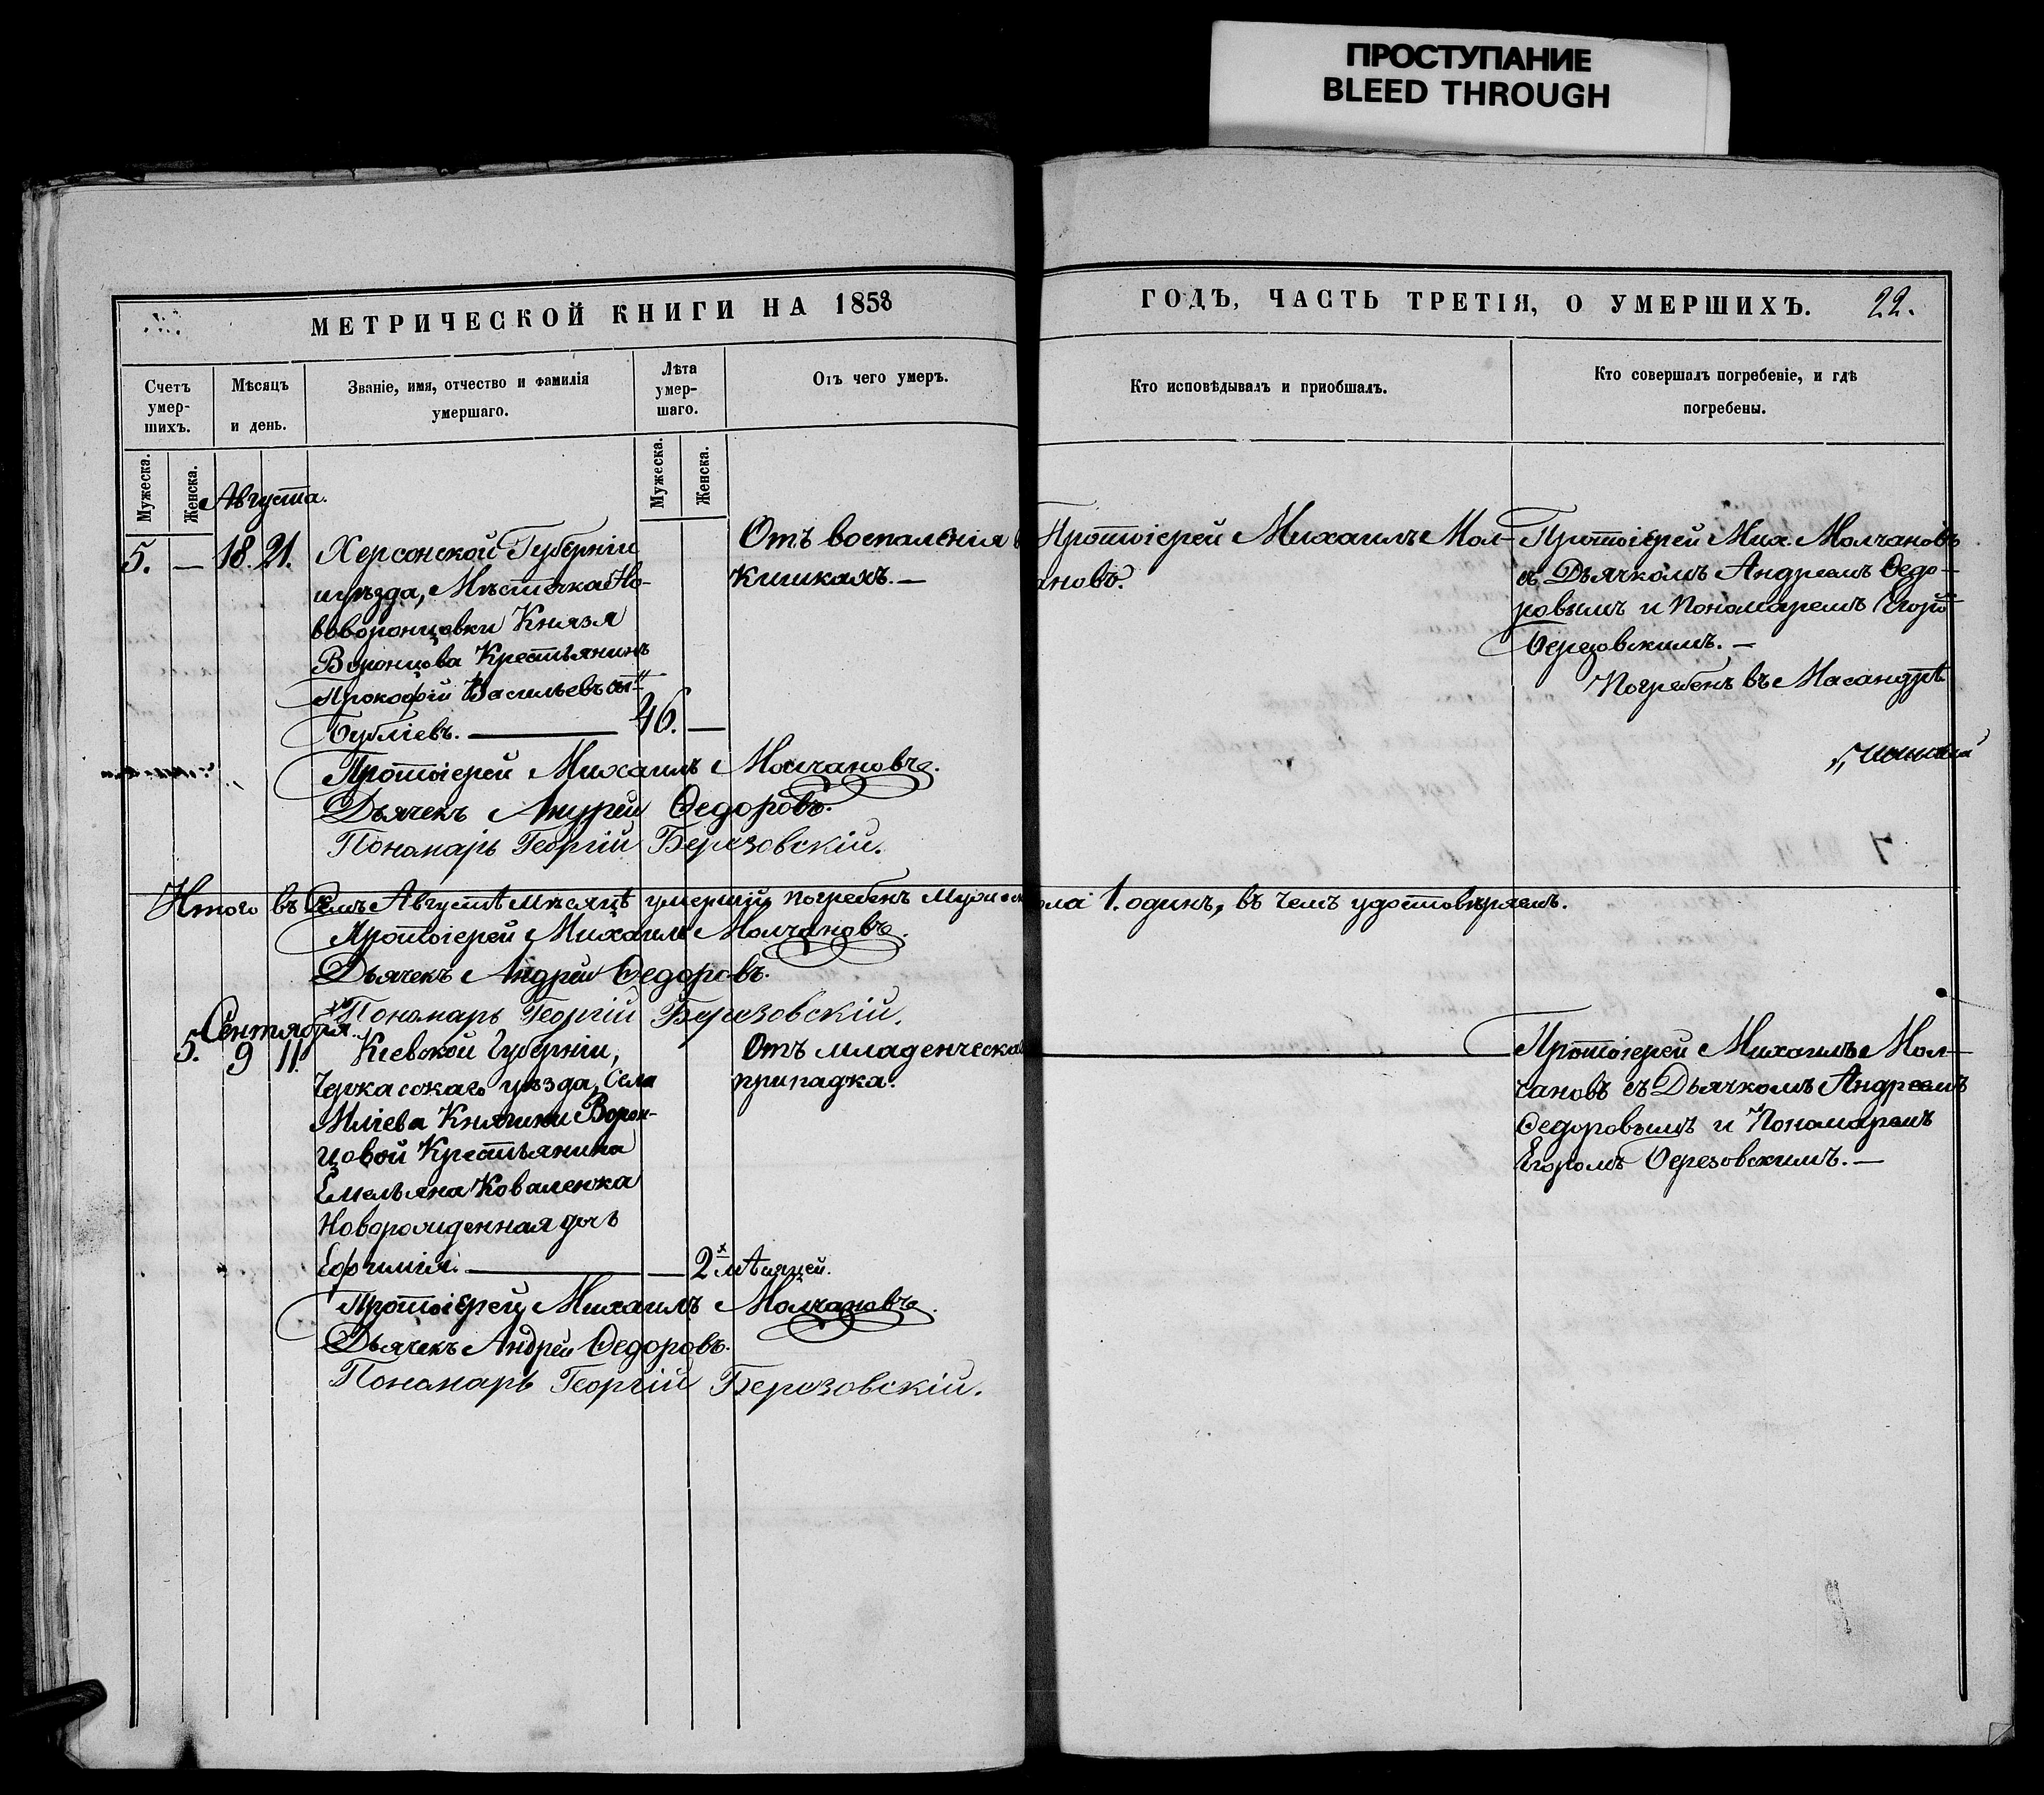 ПРОСТУПАНИЕ
BLEED THROUGH
МЕТРИЧЕСКОЙ КНИГИ НА 1858
ГОДЪ, ЧАСТЬ ТРЕТІЯ, О УМЕРШИХЪ. 22.
Счетъ умер-шихъ.
Мѣсяцъ и день.
Званіе, имя, отчество и фамилія умершаго.
Лѣта умер-шаго.
Отъ чего умеръ.
Кто исповѣдывалъ и приобщалъ.
Кто совершалъ погребеніе, и гдѣ погребены.
Мужеска.
Женска.
Мужеска.
Женска.
Августа.
5. — 18. 21.
Херсонской Губерніи
уѣзда, Мѣстечка Но-
воворонцовки Князя
Воронцова Крестьянинъ
Прокофій Васильевъ сынъ
Бубліевъ. — 46. —
Отъ воспаленія въ
кишкахъ. —
Протоіерей Михаилъ Мол-
ановъ.
Протоіерей Мих. Молчановъ
съ Дьячкомъ Андреемъ Ѳедо-
ровымъ и Пономаремъ Егоро
Березовскимъ. —
Погребенъ въ Масандрѣ
Протоіерей Михаилъ Молчановъ.
Дьячекъ Андрей Ѳедоровъ.
Пономарь Георгій Березовскій.
Итого въ Семъ Августѣ мѣсяцѣ умершій погребенъ мужеска пола 1. одинъ, въ чемъ удостовѣряемъ.
Протоіерей Михаилъ Молчановъ.
Дьячекъ Андрей Ѳедоровъ.
Пономарь Георгій Березовскій.
Сентября.
5. 9 11.
Кіевской Губерніи,
Черкасскаго уѣзда, Села
Мліева Княгини Ворон-
цовой Крестьянина
Емельяна Коваленка
Новорожденная дочь
Ефимія. — — 2х мѣсяцей.
Отъ младенческа
припадка.
Протоіерей Михаилъ Мол-
чановъ съ Дьячкомъ Андреемъ
Ѳедоровымъ и Пономаремъ
Егоромъ Березовскимъ. —
Протоіерей Михаилъ Молчановъ.
Дьячекъ Андрей Ѳедоровъ.
Пономарь Георгій Березовскій.